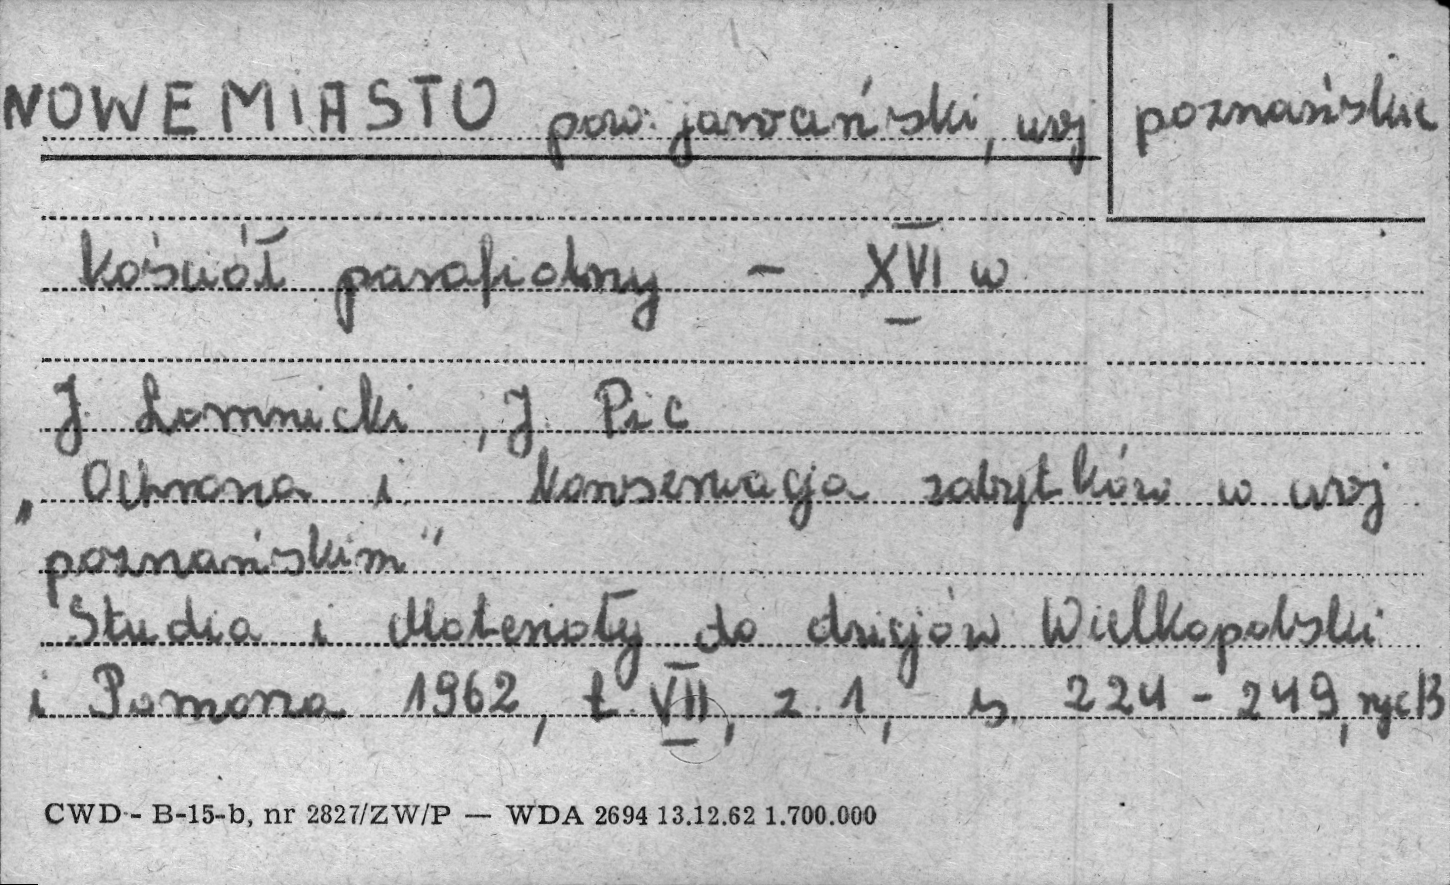 NOWE MIASTO pow. jarociński, woj poznańskie
Kościół parafialny – XVI w
J. Łomnicki, J. Pic
„Ochrona i konserwacja zabytków w woj
poznańskim"
Studia i Materiały do dziejów Wielkopolski
i Pomorza 1962, t. VII, z. 1, s. 224-249, ryc 13
CWD - B-15-b, nr 2827/ZW/P — WDA 2694 13.12.62 1.700.000